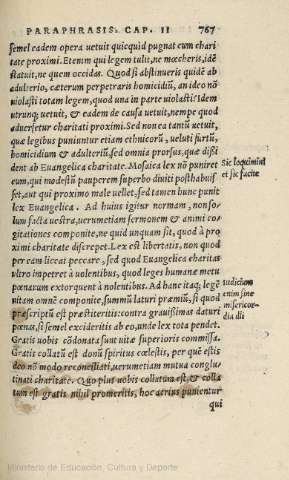 PARAPHRASIS. CAP. II 767
semel eadem opera uetuit quicquid pugnat cum chari
tate proximi. Etenim qui legem tulit, ne mœcheris, idẽ
statuit, ne quem occidas. Quod si abstinueris quidẽ ab
adulterio, cæterum perpetraris homicidiũ, an ideo nõ
uiolasti totam legem, quod una in parte uiolasti? Idem
utrunq; uetuit, & eadem de causa uetuit, nempe quod
aduersetur charitati proximi. Sed non ea tantũ uetuit,
quæ legibus puniuntur etiam ethnicorũ, ueluti furtũ,
homicidium & adulteriũ, sed omnia prorsus, quæ dissi
dent ab Euangelica charitate. Mosaica lex nõ puniret
eum, qui modestũ pauperem superbo diuiti posthabuis
set, aut qui proximo male uellet, sed tamen hunc punit
lex Euangelica. Ad huius igitur normam, non so-
lum facta uestra, uerumetiam sermonem & animi co-
gitationes componite, ne quid unquam sit, quod à pro
ximi charitate discrepet. Lex est libertatis, non quod
per eam liceat peccare, sed quod Euangelica charitas
ultro impetret à uolentibus, quod leges humanæ metu
pœnarum extorquent à nolentibus. Ad hanc itaq; legẽ
uitam omnẽ componite, summũ laturi præmiũ, si quod
præscriptũ est præstiteritis: contra grauissimas daturi
pœnas, si semel excideritis ab eo, unde lex tota pendet.
Gratis uobis cõdonata sunt uitæ superioris commissa.
Gratis collatũ est donũ spiritus cœlestis, per quẽ estis
deo nõ modo reconciliati, uerumetiam mutua conglu-
tinati charitate. Quo plus uobis collatum est, & colla
tum est gratis nihil promeritis, hoc acrius punientur
qui
Sic loquimini
et sic facite
Iudicium
enim sine
misericor-
dia illi
Ministerio de Educación, Cultura y Deporte